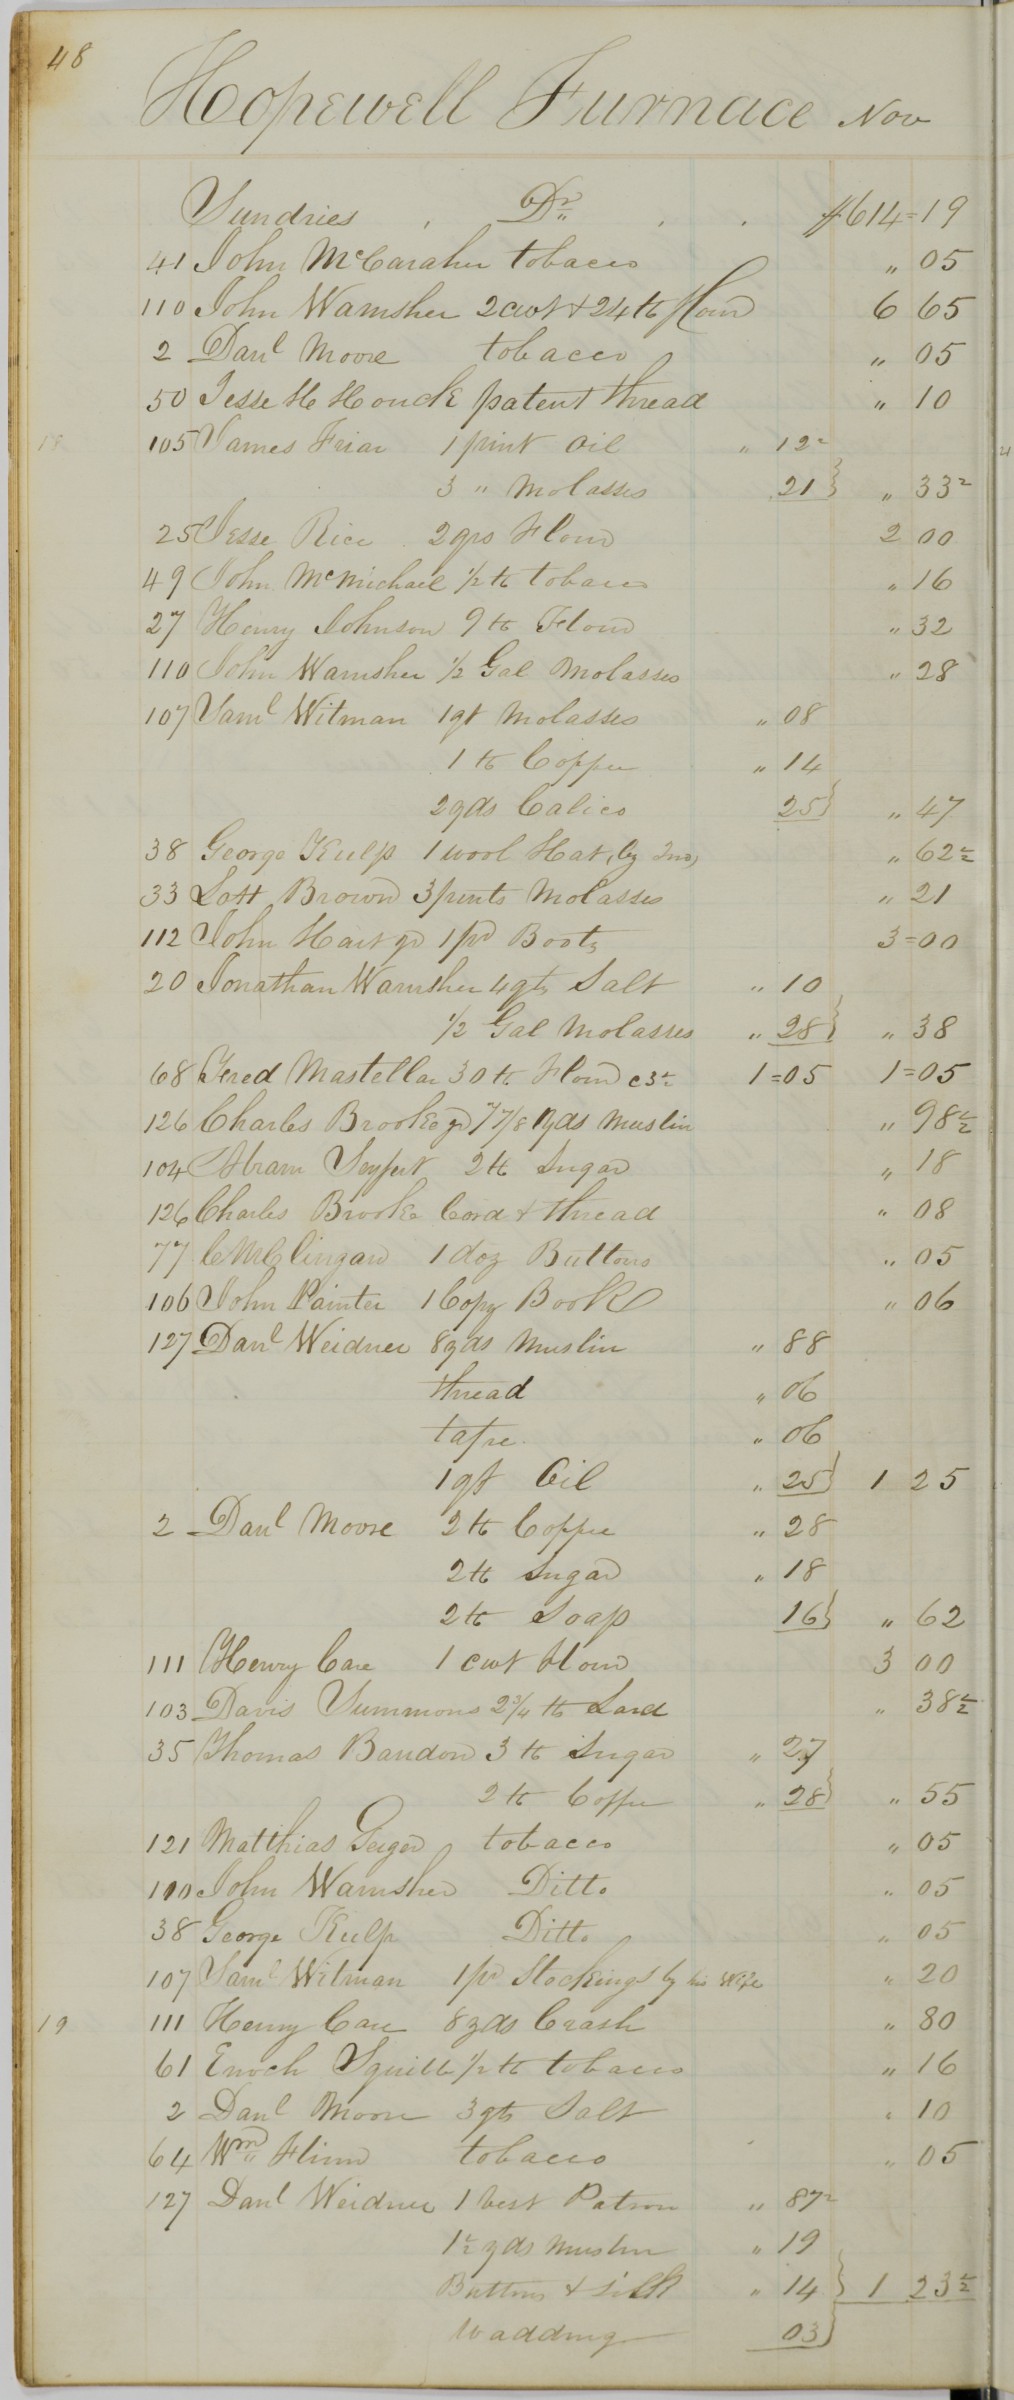 48
Hopewell Furnace Nov
Sundries . Dr . . $614=19
41 John McCaraher tobacco " 05
110 John Wamsher 2 cwt + 24 lb flour 6 65
2 Danl Moore tobacco " 05
50 Jesse H Houck patent thread " 10
18 105 James Friar 1 pint oil " 12½
3 " Molasses 21 } " 33½
25 Jesse Rice 2 qrs Flour 2 00
49 John McMichael ½ lb tobacco " 16
27 Henry Johnson 9 lb Flour " 32
110 John Wamsher ½ Gal Molasses " 28
107 Saml Witman 1 qt Molasses " 08
1 lb Coffee " 14
2 yds Calico 25 } " 47
38 George Kulp 1 wool Hat, by Jno, " 62½
33 Lott Brown 3 pints Molasses " 21
112 John Hart jr 1 pr Boots 3=00
20 Jonathan Wamsher 4 qts Salt " 10
½ Gal Molasses " 28 } " 38
68 Fred Mastellar 30 lb Flour c 3½ 1=05 1=05
126 Charles Brooke jr 7 7/8 yds Muslin " 98½
104 Abram Seyfert 2 lb Sugar " 18
126 Charles Brooke Cord + thread " 08
77 C M Clingan 1 doz Buttons " 05
106 John Painter 1 Copy Book " 06
127 Danl Weidner 8 yds Muslin " 88
thread " 06
tape " 06
1 qt Oil " 25 } 1 25
2 Danl Moore 2 lb Coffee " 28
2 lb Sugar " 18
2 lb Soap 16 } " 62
111 Henry Care 1 cwt Flour 3 00
103 Davis Summons 2¾ lb Lard " 38½
35 Thomas Baudon 3 lb Sugar " 27
2 lb Coffee " 28 } " 55
121 Matthias Geiger tobacco " 05
110 John Wamsher Ditto " 05
38 George Kulp Ditto " 05
107 Saml Witman 1 pr Stockings by his Wife " 20
19 111 Henry Care 8 yds Crash " 80
61 Enoch Squibb ½ lb tobacco " 16
2 Danl Moore 3 qts Salt " 10
64 Wm Flinn tobacco " 05
127 Danl Weidner 1 vest Patron " 87½
1½ yds Muslin " 19
Buttons + silk " 14 } 1 23½
Wadding 03 }